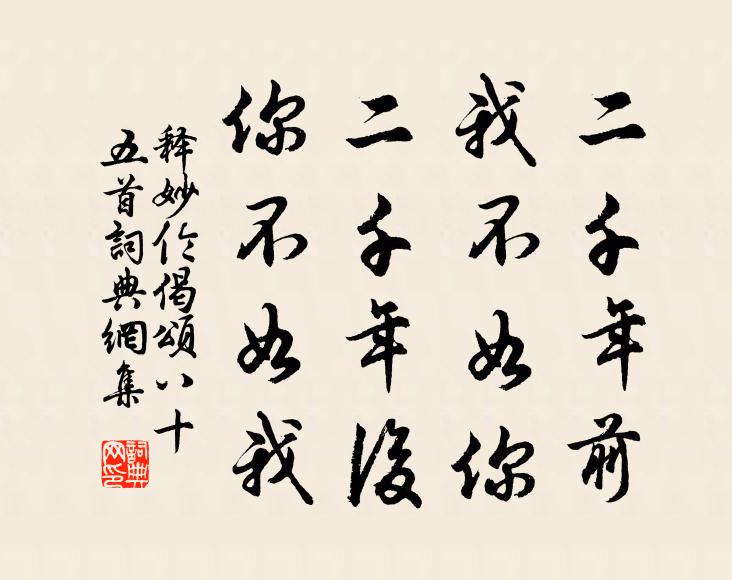 二千年前
我不如你
二千年後
你不如我
释妙伦偈頌八十
五首詞典網集
詞典网印